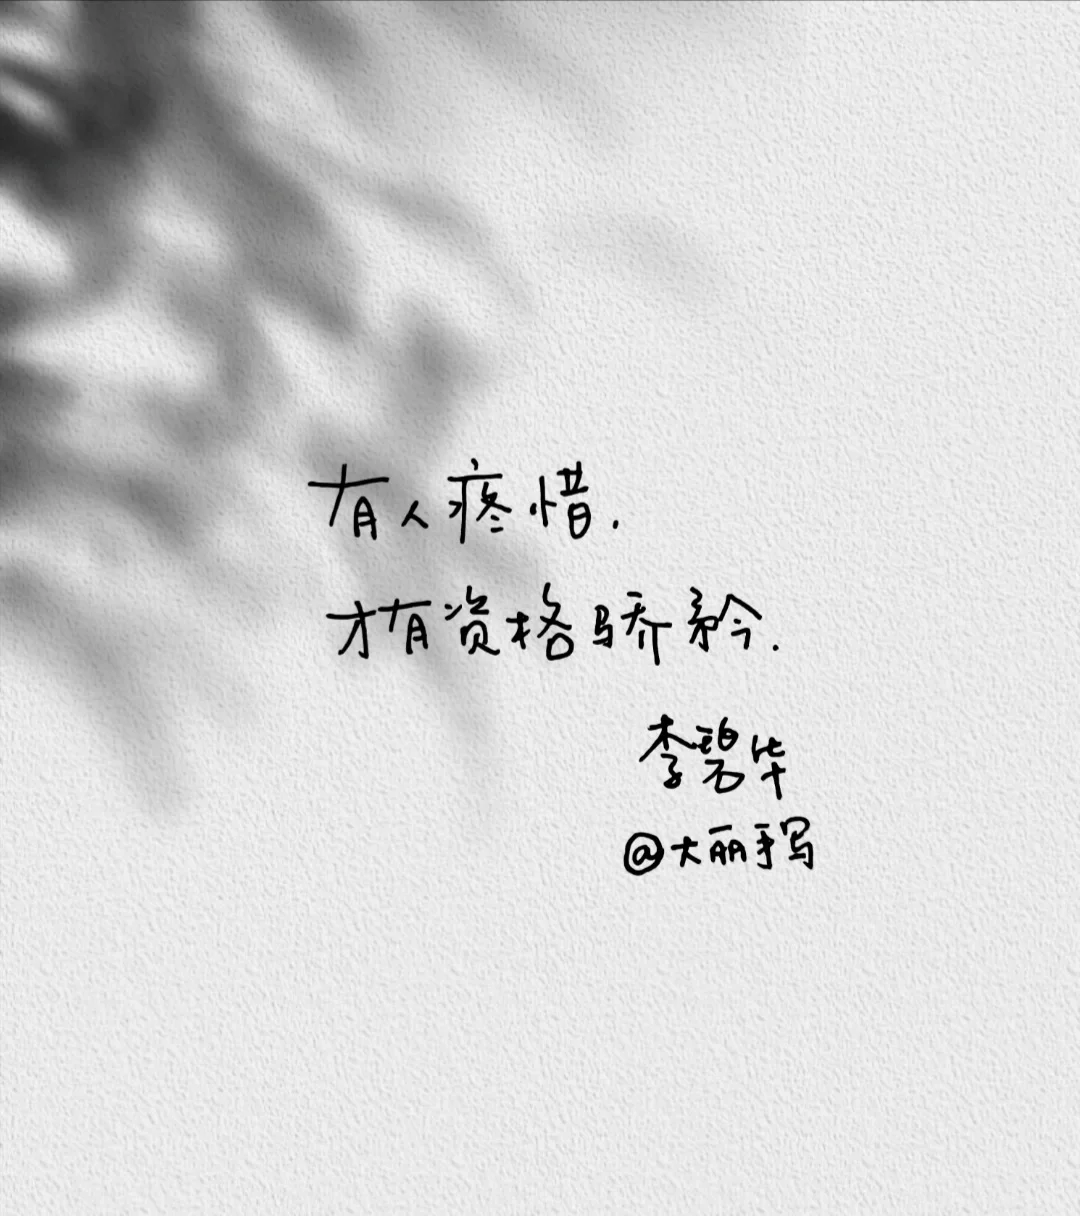 有人疼惜.
才有资格骄矜.
李碧华
@大丽手写